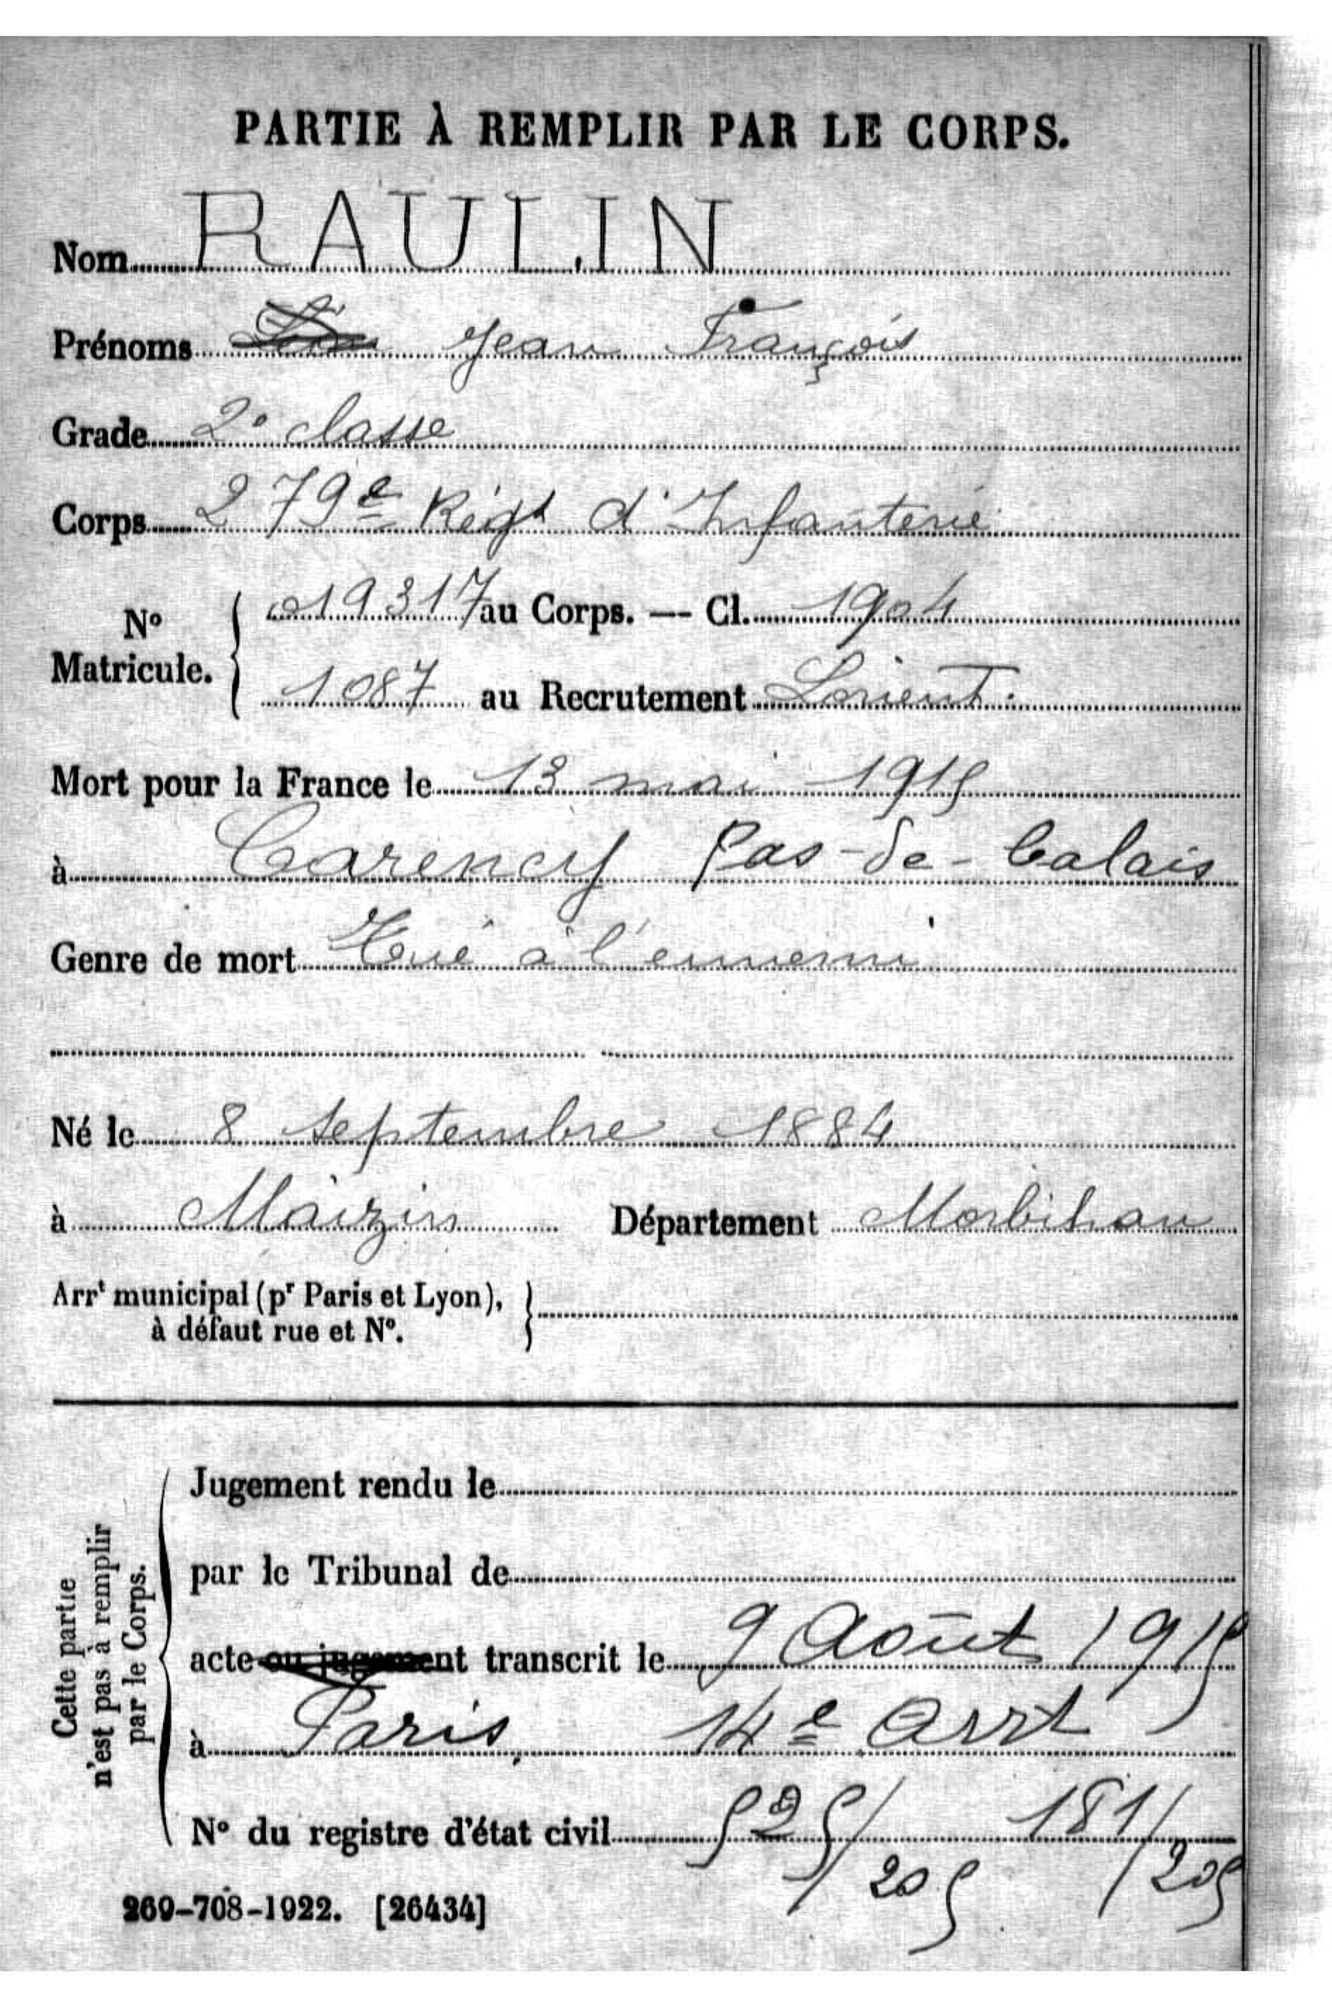 PARTIE À REMPLIR PAR LE CORPS.
Nom RAULIN
Prénoms Jean François
Grade 2e classe
Corps 279e Régt d'Infanterie
No Matricule. { 019317 au Corps. — Cl. 1904
1087 au Recrutement Lorient.
Mort pour la France le 13 mai 1915
à Carency Pas-de-Calais
Genre de mort Tué à l'ennemi
Né le 8 septembre 1884
à Maizin Département Morbihan
Arrt municipal (pr Paris et Lyon), }
à défaut rue et No.
Cette partie
n'est pas à remplir
par le Corps.
Jugement rendu le
par le Tribunal de
acte ou jugement transcrit le 9 Août 1915
à Paris, 14e Arrt
No du registre d'état civil 525/205 181/205
269-708-1922. [26434]